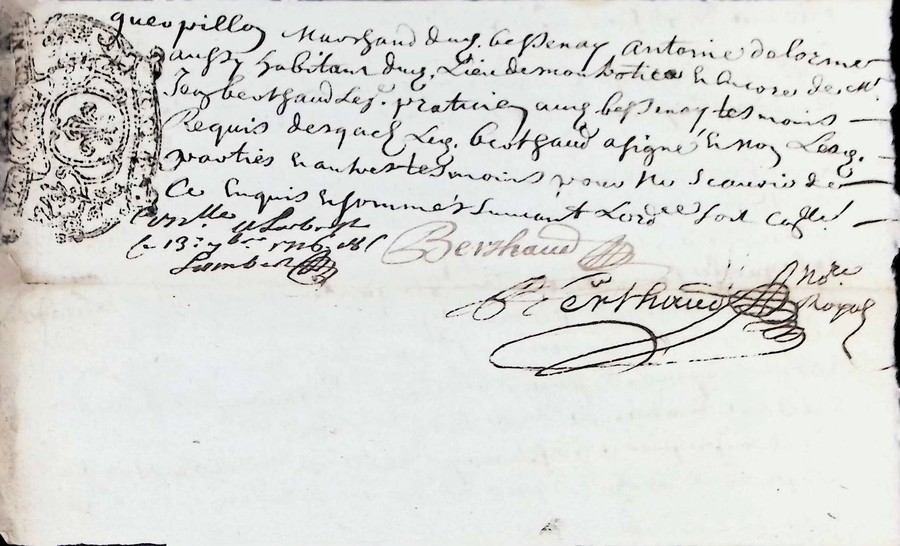 querpillon Marchand dud. bessenay antoine delorme
aussy habitant dud. Lieu de montrotier Encores de Mr.
Jean berthaud Les. praticien aud bessenay tesmoins
Requis desquels Led. berthaud a signé Et non Lesd.
parties et autres tesmoins pour ne Scavoir de
Ce Enquis et sommés suivant Lord.ce Soit Collé.
Conllé a
le 13e 7bre
Lambert
Berthaud
Berthaud
nore
Royal